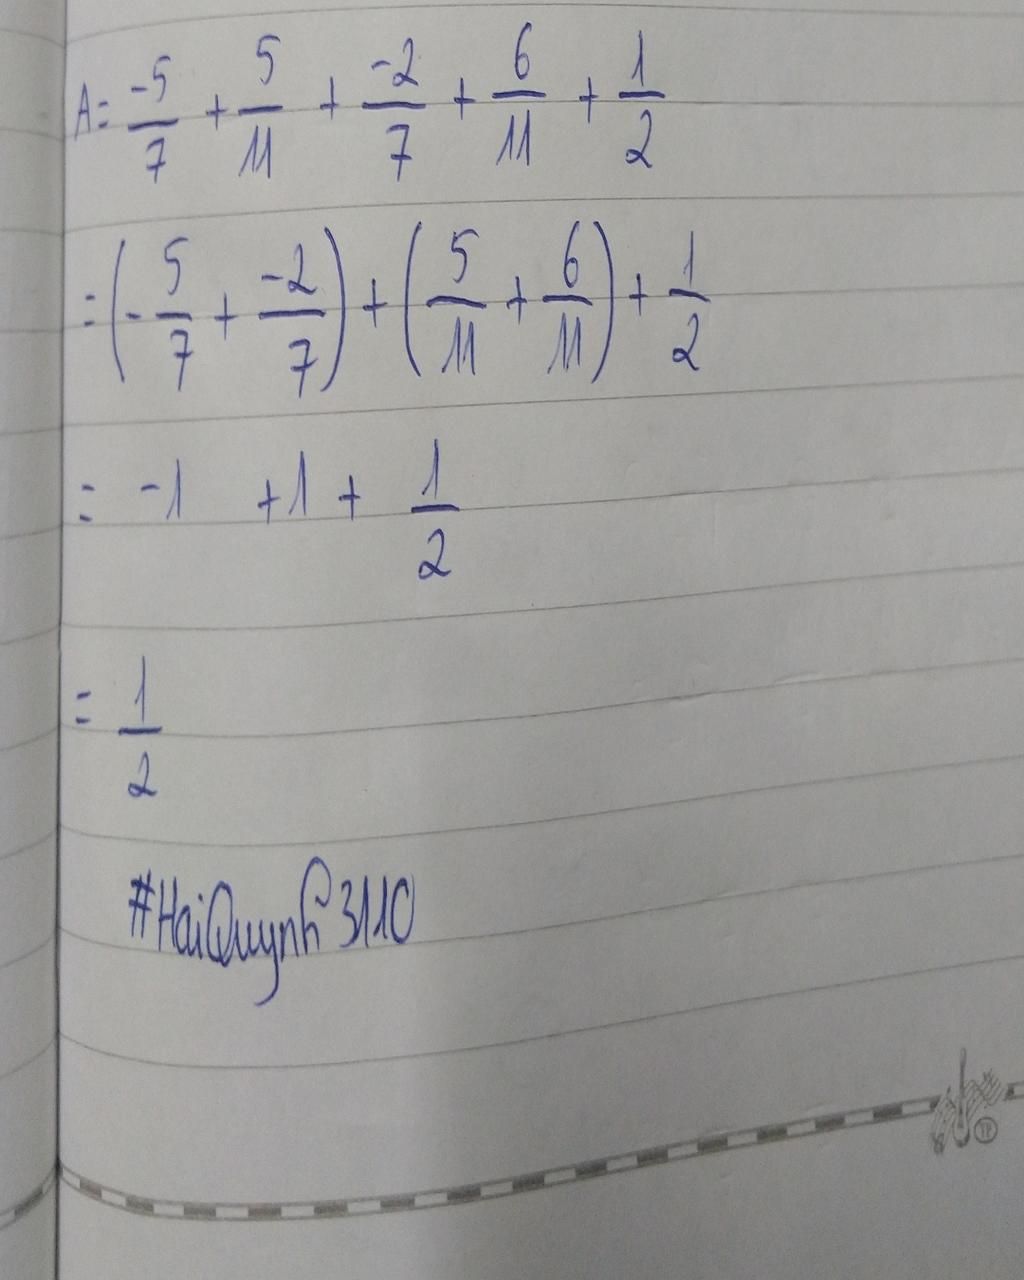 A = -5/7 + 5/11 + -2/7 + 6/11 + 1/2
= (-5/7 + -2/7) + (5/11 + 6/11) + 1/2
= -1 + 1 + 1/2
= 1/2
#HaiQuynh3110